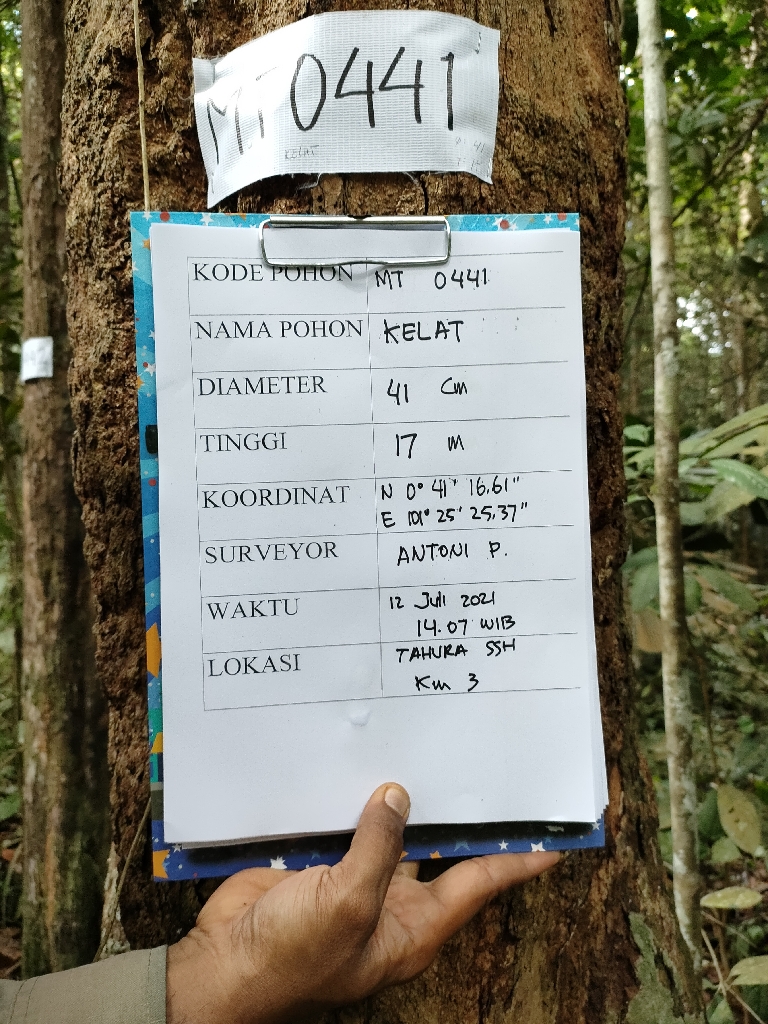 MT 0441
KELAT
KODE POHON MT 0441
NAMA POHON KELAT
DIAMETER 41 Cm
TINGGI 17 m
KOORDINAT N 0° 41' 16.61"
E 101° 25' 25.37"
SURVEYOR ANTONI P.
WAKTU 12 Juli 2021
14.07 WIB
LOKASI TAHURA SSH
Km 3